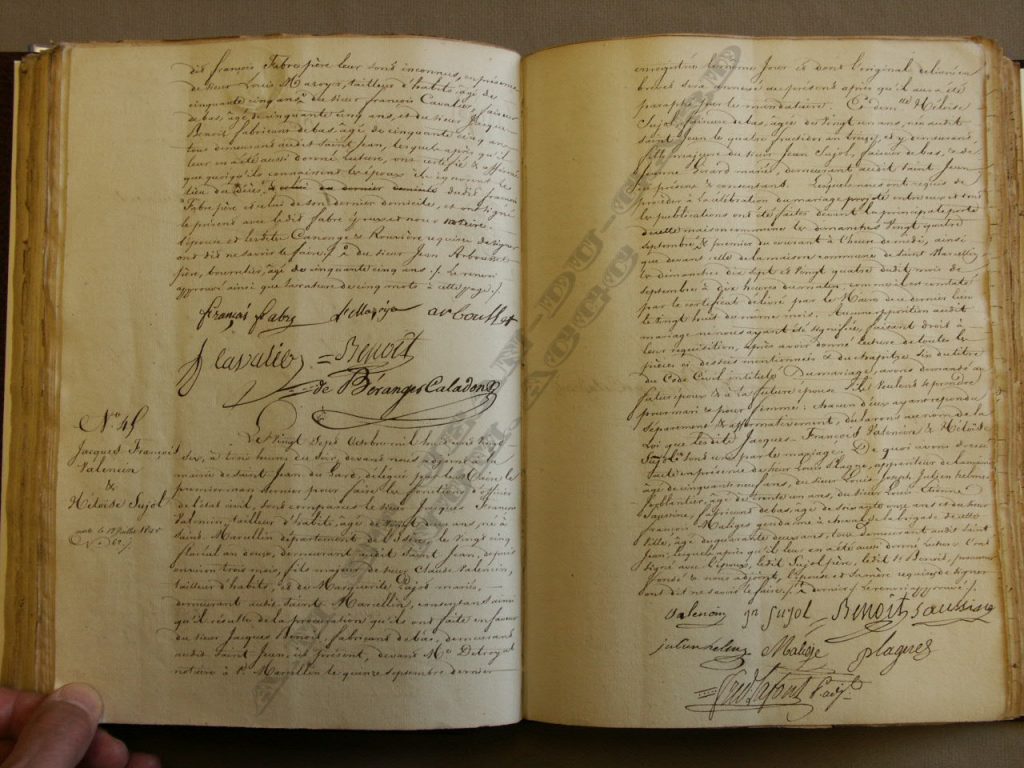 dit françois Fabre père leur sont inconnus, en présence
de sieur Louis Mazoyer, tailleur d'habits, âgé de
cinquante cinq ans, du sieur françois Cavalier, faiseur
de bas, âgé de cinquante cinq ans, et du sieur Jacques
Benoit, fabricant de bas, âgé de cinquante cinq ans,
tous demeurant audit Saint Jean, lesquels après qu'il
leur en a été aussi donné lecture, ont certifié & affirmé
que quoiqu'ils connaissent les époux ils ignorent le
lieu du décès, & celui du dernier domicile dudit françois
Fabre père et celui de son dernier domicile, et ont signé
le présent avec ledit fabre époux et nous
l'épouse et les dits Canonge & Rouvière requis de signer
ont dit ne savoir le faire, & du sieur Jean Arbousset
père, âgé de cinquante cinq ans ./. Le renvoi
approuvé ainsi que la rature de cinq mots à cette page ./.
françois fabre Ls Mazoyer arbousset
Cavalié Benoit
de Béranger Caladon
No. 45
Jacques François
Valencin
&
Héloïse Sujol
Le Vingt Sept Octobre mil huit cent vingt
six, à trois heures du soir, devant nous adjoint au
maire de Saint Jean du Gard, délégué par le Maire le
premier mai dernier pour faire les fonctions d'officier
de l'état civil, sont comparus le sieur Jacques François
Valencin, tailleur d'habits, âgé de vingt deux ans, né à
Saint Marcellin département de l'Isère, le vingt cinq
floréal an douze, demeurant audit Saint Jean, depuis
environ trois mois, fils majeur de sieur Claude Valencin,
tailleur d'habits, et de Marguerite Pajot mariés,
demeurant audit Saint Marcellin, consentans ainsi
qu'il résulte de la procuration qu'ils ont faite en faveur
du sieur Jacques Benoit, fabricant de bas, demeurant
audit Saint Jean, ici présent, devant Me Detroyat
notaire à St. Marcellin le quinze septembre dernier
enregistrée le même jour et dont l'original délivré en
brevet sera annexé au présent après qu'il aura été
paraphé par le mandataire. Et demlle Héloïse
Sujol, faiseuse de bas, âgée de vingt un ans, née audit
Saint Jean le quatre fructidor an treize, et y demeurant,
fille majeure du sieur Jean Sujol, faiseur de bas, & de
Jeanne mariés, demeurant audit Saint Jean
ici présens & consentans. Lesquels nous ont requis de
procéder à la célébration du mariage projeté entre eux et dont
les publications ont été faites devant la principale porte
d'icelle maison commune les dimanches vingt quatre
septembre & premier du courant à l'heure de midi, ainsi
que devant celle de la maison commune de Saint Marcellin,
les dimanches dix sept et vingt quatre dudit mois de
septembre à dix heures du matin, comme il est constaté
par le certificat délivré par le Maire du dernier lieu
le vingt huit du même mois. Aucune opposition audit
mariage ne nous ayant été signifiée, faisant droit à
leur réquisition, après avoir donné lecture de toutes les
pièces ci dessus mentionnées & du chapitre six du titre
du Code Civil intitulé Du mariage, avons demandé au
futur époux & à la future épouse s'ils veulent se prendre
pour mari & pour femme : chacun d'eux ayant répondu
séparément & affirmativement, déclarons au nom de la
Loi que lesdits Jacques-François Valencin & Héloïse
Sujol sont unis par le mariage. De quoi avons dressé
acte en présence de sieur Louis Plagne, appariteur de la mairie
âgé de cinquante neuf ans, du sieur Louis Joseph Julien
ferblantier, âgé de trente un ans, du sieur Louis Etienne
Saussine, fabricant de bas, âgé de soixante onze ans et du sieur
françois Malige gendarme à cheval de la brigade de cette
ville, âgé de quarante deux ans, tous demeurant audit Saint
Jean, lesquels après qu'il leur en a été aussi donné lecture l'ont
signé avec l'époux, ledit Sujol père, ledit Sr Benoit, procureur
fondé & nous adjoint, l'épouse et sa mère requises de signer
ont dit ne savoir le faire ./. Le renvoi approuvé ./.
Valencin Jn Sujol Benoit Saussine
Malige plagnes